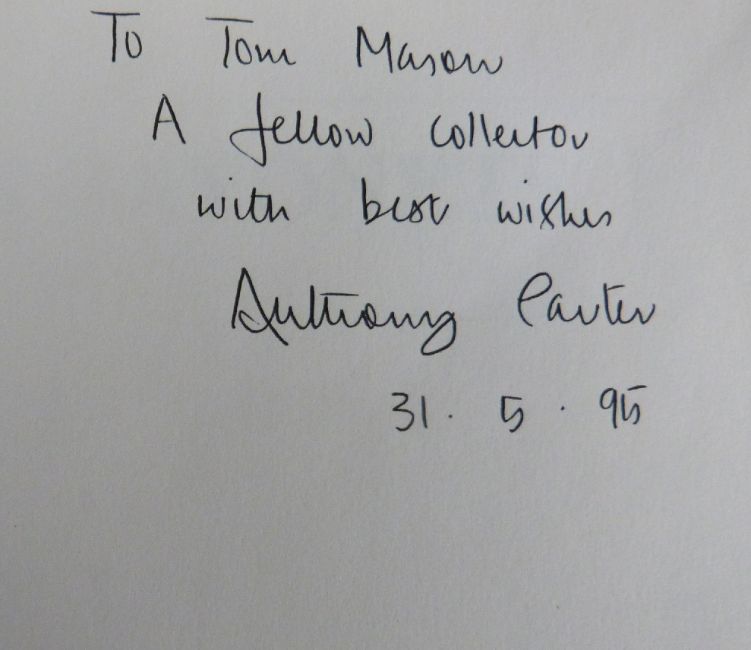 To Tom Mason
A fellow collector
with best wishes
Anthony Carter
31. 5. 95